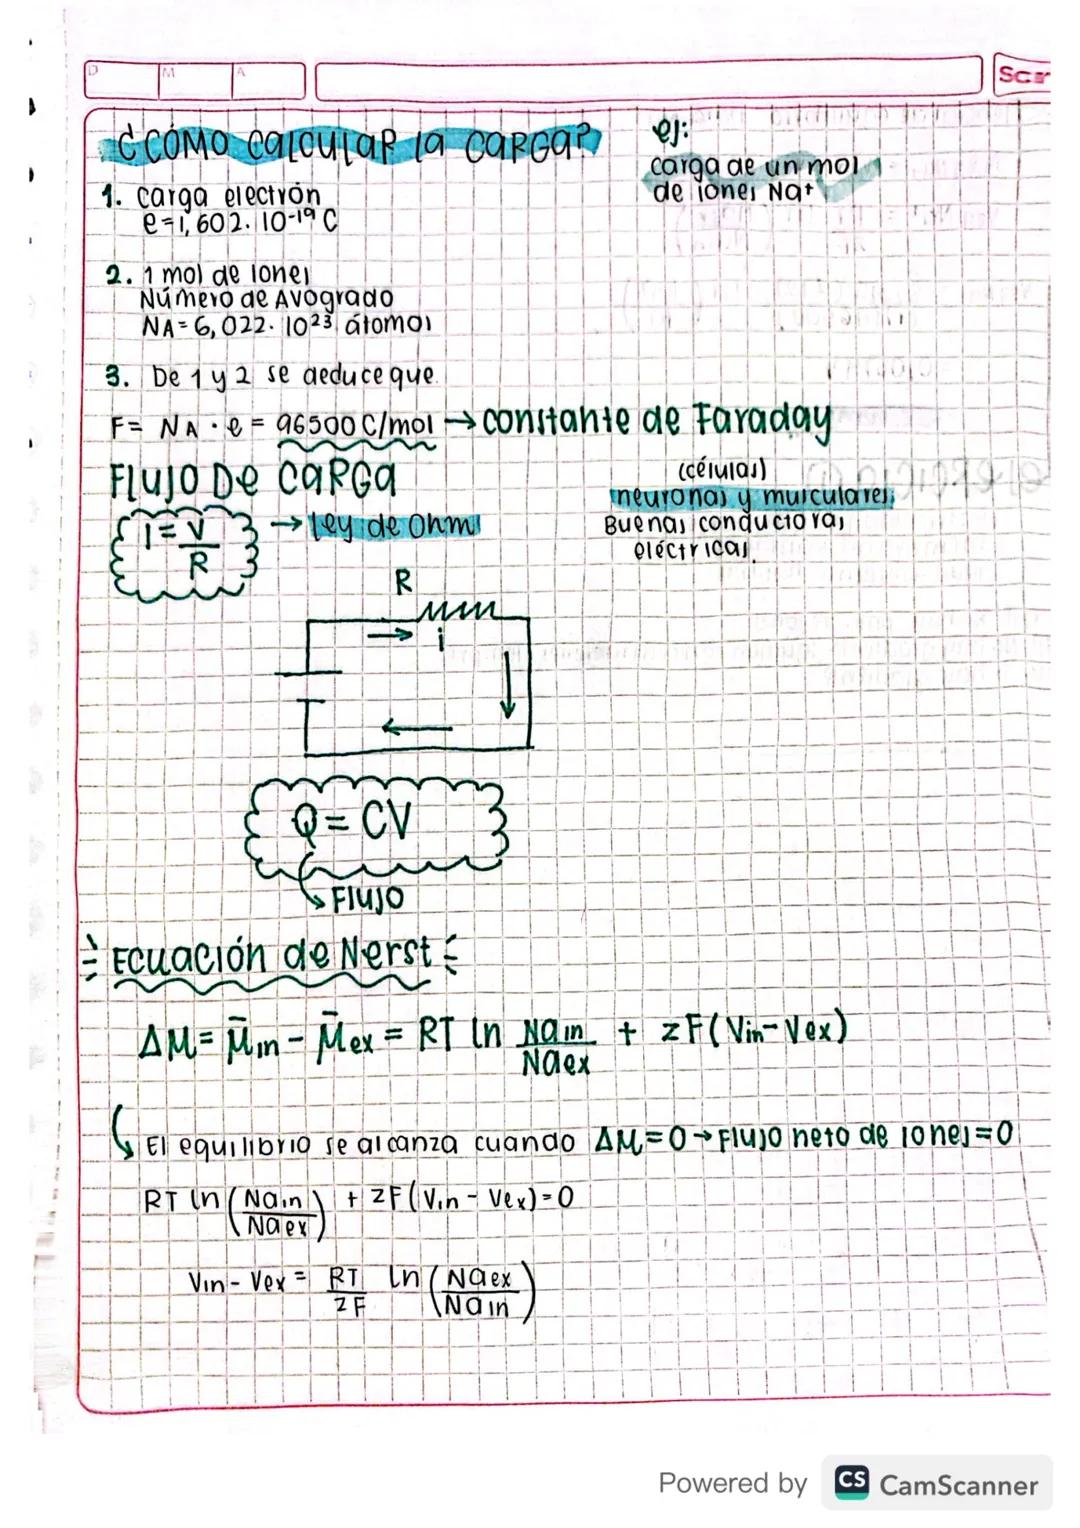 D M A
Scr
¿CÓMO CALCULAR la CARGA?
ej:
carga de un mol
de iones Na+
1. carga electrón
e=1,602.10-19 C
2. 1 mol de Iones
Número de Avogrado
NA=6,022.10²³ átomos
3. De 1 y 2 se deduce que.
F= NA · e = 96500 C/mol → constante de Faraday
Flujo De CARGA
I = V/R → ley de Ohm
(células)
neuronas y musculares:
Buenas conductoras
eléctricas.
R
i
Q = CV
↳ Flujo
Ecuación de Nerst
ΔM = μ̄in - μ̄ex = RT ln Nain/Naex + zF(Vin-Vex)
↳ El equilibrio se alcanza cuando ΔM=0 → Flujo neto de iones=0
RT ln (Nain/Naex) + zF(Vin - Vex)=0
Vin - Vex = RT/zF ln (Naex/Nain)
Powered by CS CamScanner